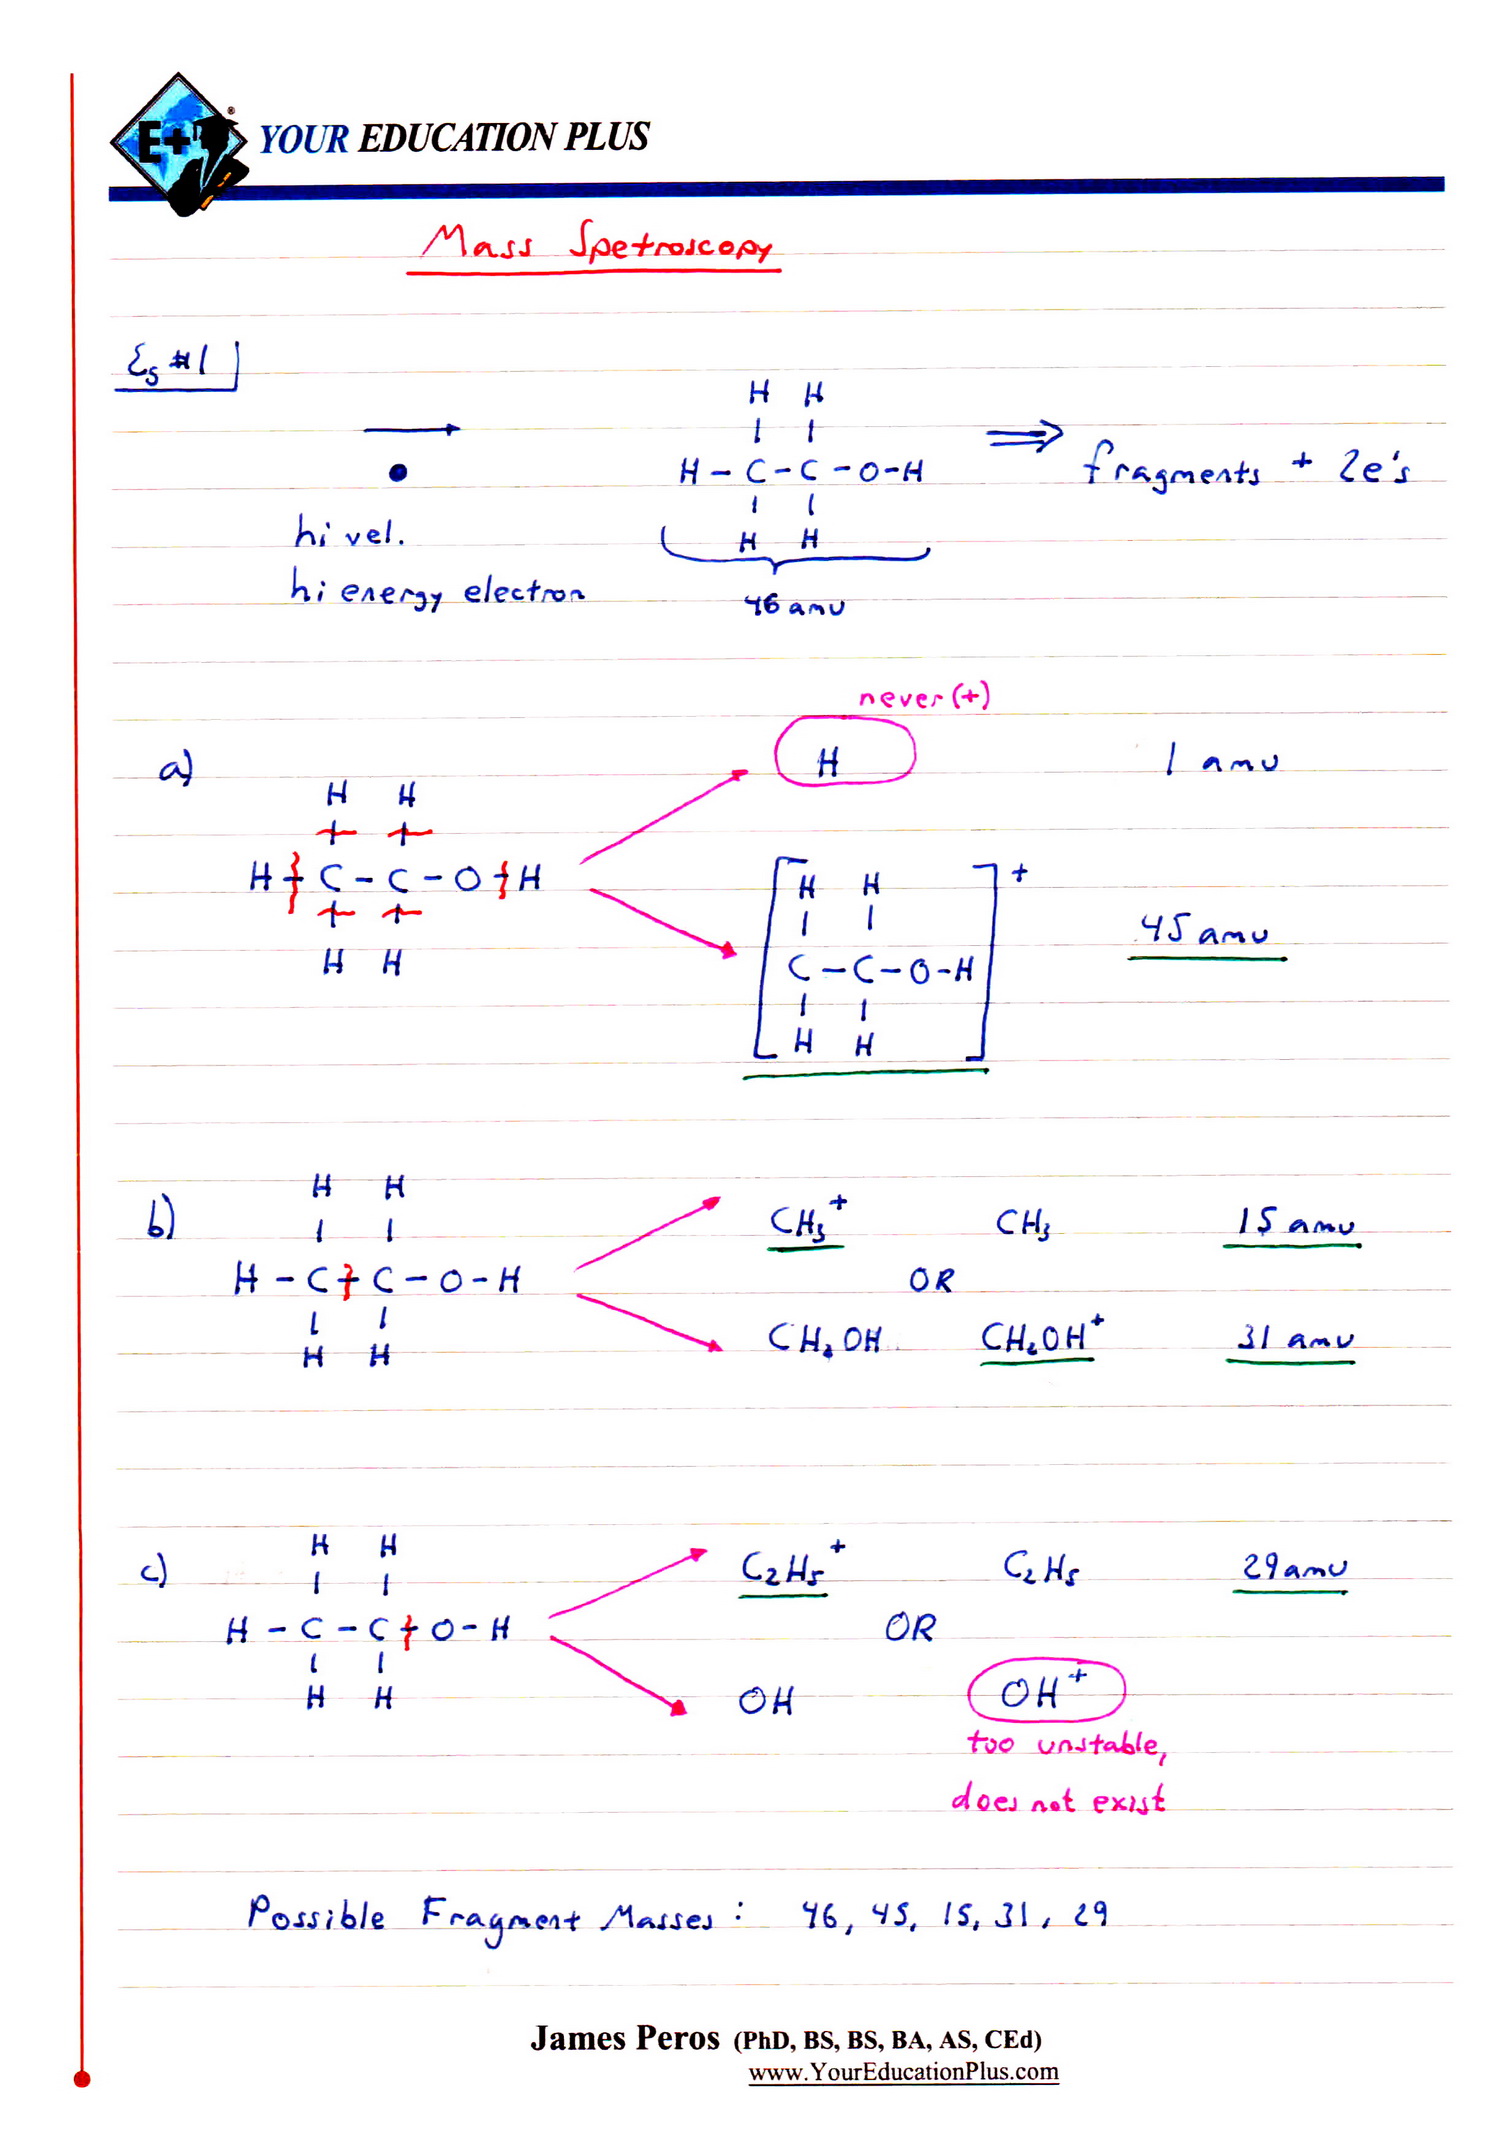 E+
®
YOUR EDUCATION PLUS
Mass Spetroscopy
Es #1
H H
H - C - C - O - H ⇒ fragments + 2e's
H H
hi vel.
hi energy electron
46 amu
never (+)
a) H 1 amu
H H
H - C - C - O - H
H H
[ H H ] +
C - C - O - H
H H
45 amu
b) H H
H - C - C - O - H
H H
CH3+ CH3 15 amu
OR
CH2OH CH2OH+ 31 amu
c) H H
H - C - C - O - H
H H
C2H5+ C2H5 29 amu
OR
OH OH+
too unstable,
does not exist
Possible Fragment Masses: 46, 45, 15, 31, 29
James Peros (PhD, BS, BS, BA, AS, CEd)
www.YourEducationPlus.com